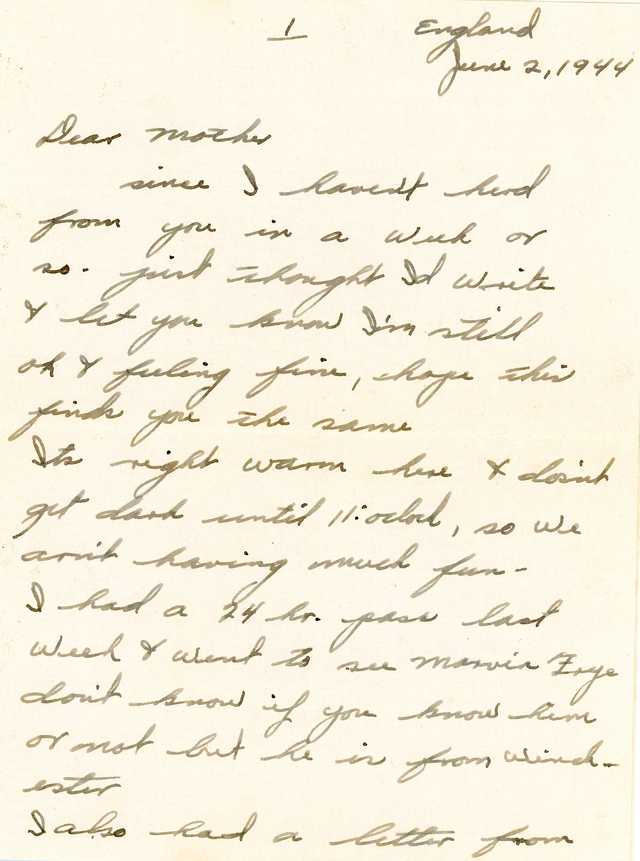 1
England
June 2, 1944
Dear Mother
since I haven't herd
from you in a week or
so. just thought I'd write
& let you know I'm still
ok & feeling fine, hope this
finds you the same
Its right warm here & dosn't
get dark until 11:oclock, so we
arn't having much fun-
I had a 24 hr. pass last
week & went to see Marvin Frye
don't know if you know him
or not but he is from Winch-
ester
I also had a letter from